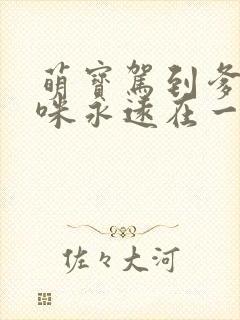 萌寶駕到爹
咪永遠在一
佐々大河